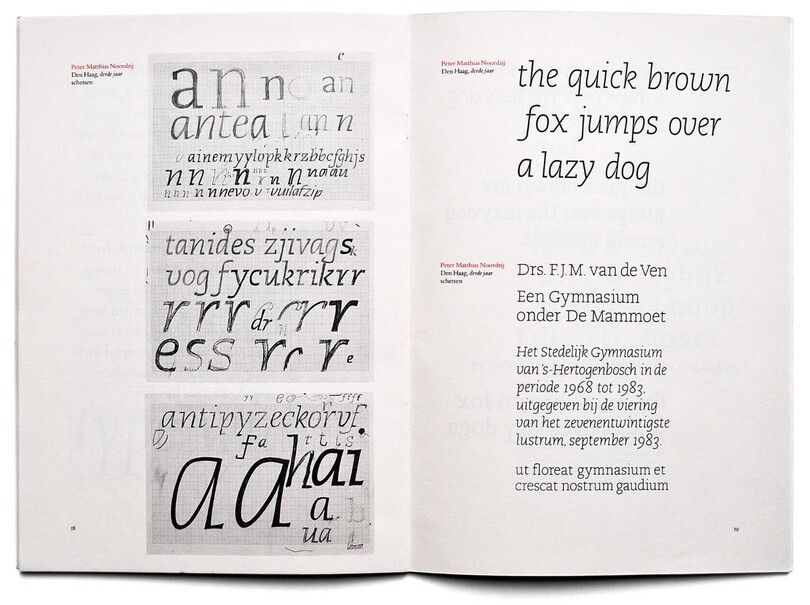 Peter Matthias Noordzij
Den Haag, derde jaar
schetsen
c
an n an
antea an n
ainemyylopkkrzbbcfghjs
nnevo
tanides zjivags
vogfycukrikrr
rrr dr rr
ess rr r e
antipyzeckorvf
fa r t l s
a a hai
a b
ua
18
Peter Matthias Noordzij
Den Haag, derde jaar
schetsen
the quick brown
fox jumps over
a lazy dog
Peter Matthias Noordzij
Den Haag, derde jaar
schetsen
Drs. F.J.M. van de Ven
Een Gymnasium
onder De Mammoet
Het Stedelijk Gymnasium
van 's-Hertogenbosch in de
periode 1968 tot 1983,
uitgegeven bij de viering
van het zevenentwintigste
lustrum, september 1983.
ut floreat gymnasium et
crescat nostrum gaudium
19